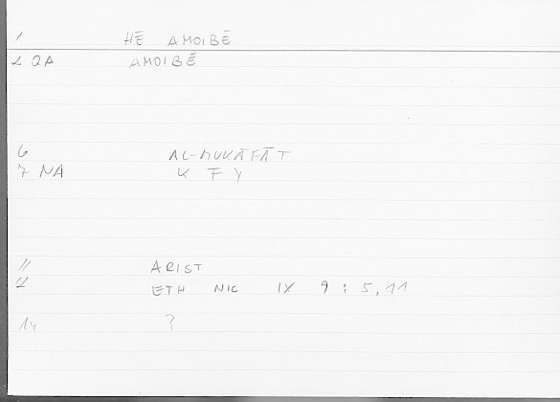 1 HĒ AMOIBĒ
2 QA AMOIBĒ
6 AL-MUKĀFĀT
7 NA K F Y
11 ARIST
12 ETH NIC IX 9 : 5,11
14 ?